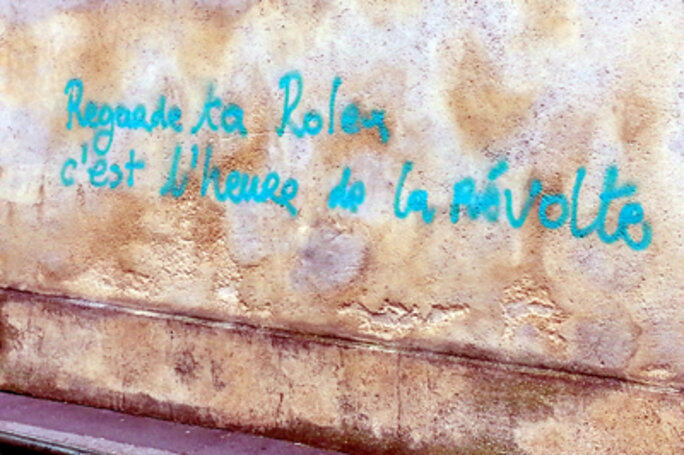 Regarde ta Rolex
c'est l'heure de la révolte